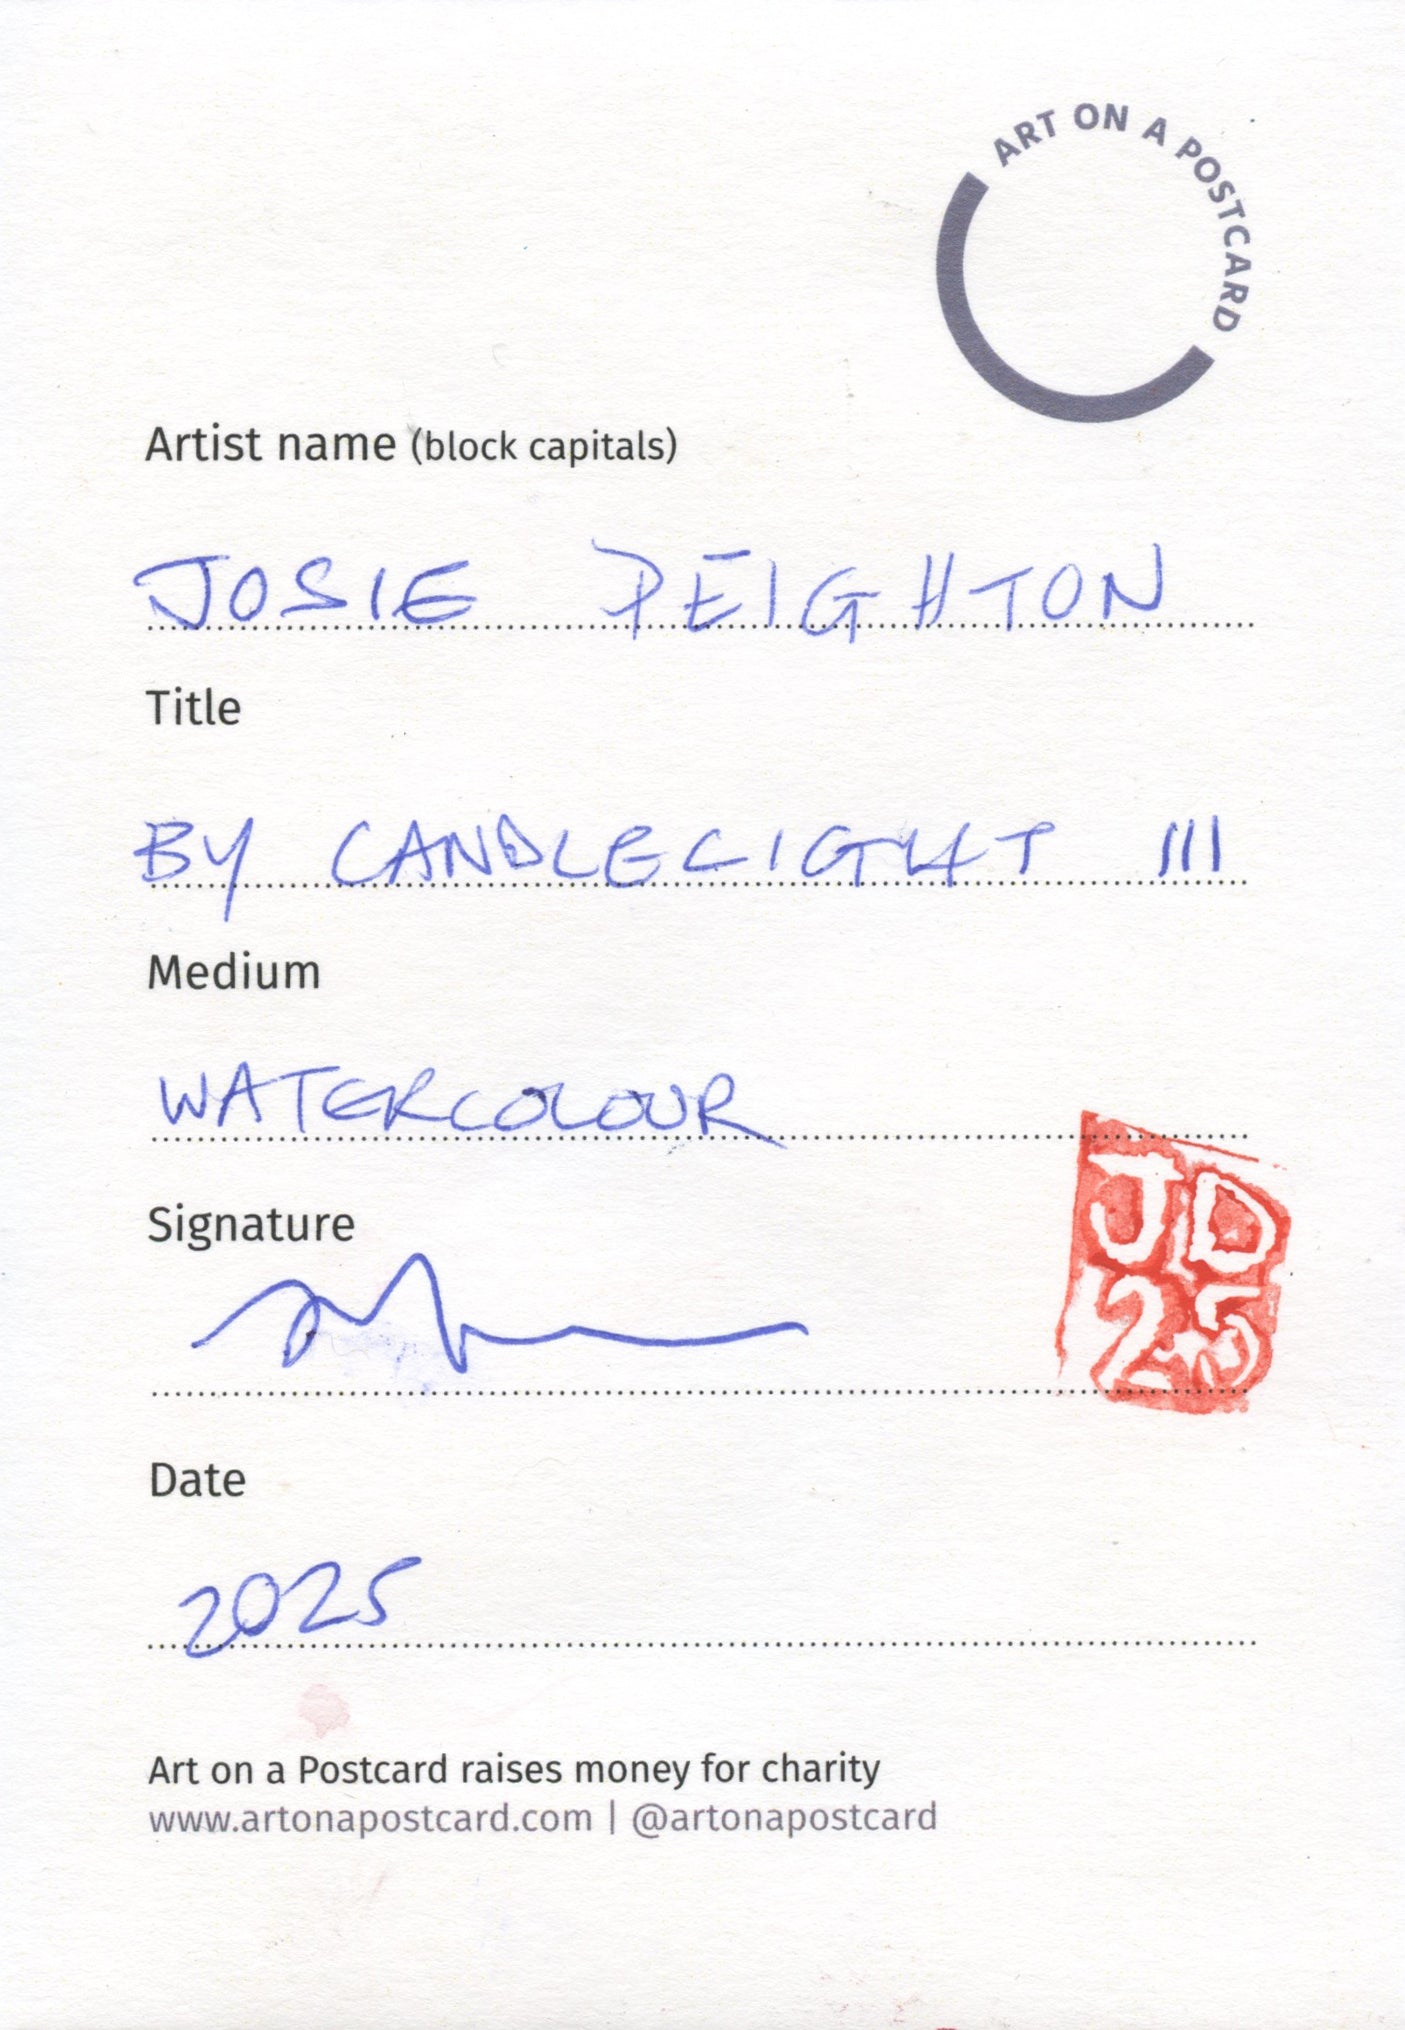 ART ON A POSTCARD
Artist name (block capitals)
JOSIE DEIGHTON
Title
BY CANDLELIGHT III
Medium
WATERCOLOUR
Signature
JD
25
Date
2025
Art on a Postcard raises money for charity
www.artonapostcard.com | @artonapostcard